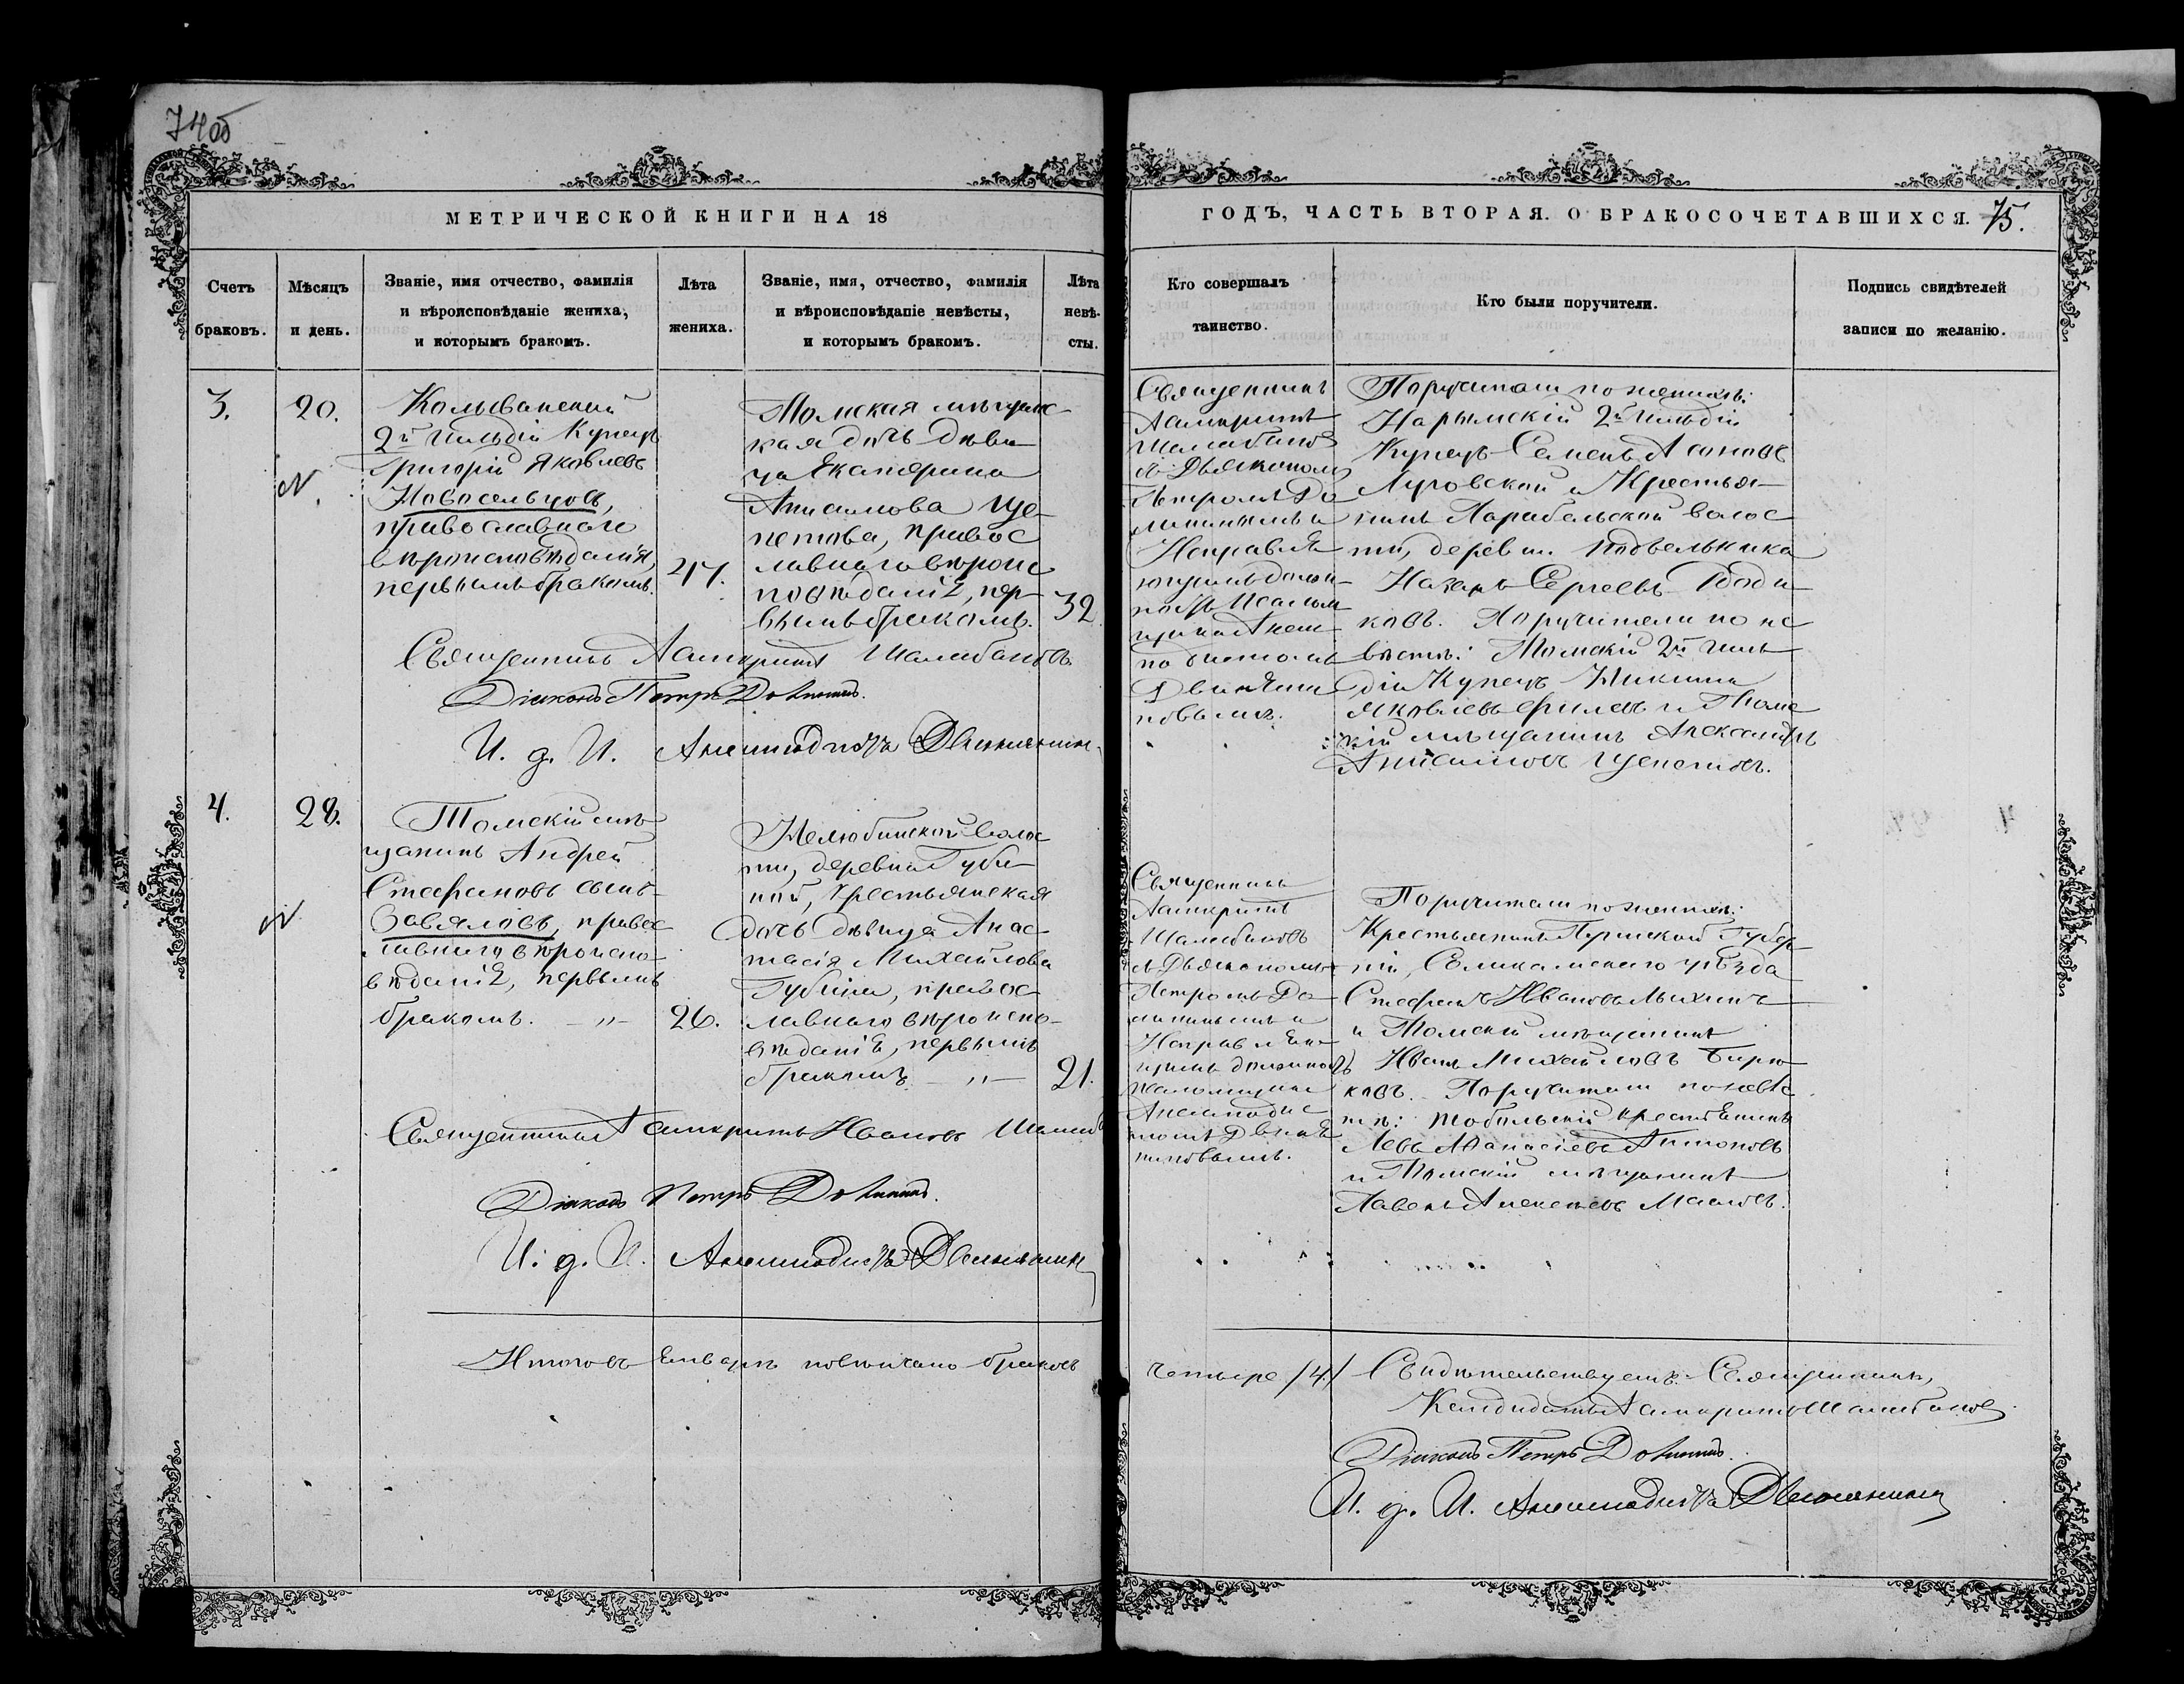 74об
МЕТРИЧЕСКОЙ КНИГИ НА 18
ГОДЪ, ЧАСТЬ ВТОРАЯ. О БРАКОСОЧЕТАВШИХСЯ. 75.
Счетъ браковъ.
Мѣсяцъ и день.
Званіе, имя отчество, фамилія
и вѣроисповѣданіе жениха,
и которымъ бракомъ.
Лѣта жениха.
Званіе, имя, отчество, фамилія
и вѣроисповѣданіе невѣсты,
и которымъ бракомъ.
Лѣта невѣ-
сты.
Кто совершалъ
таинство.
Кто были поручители.
Подпись свидѣтелей
записи по желанію.
3.
20.
Колыванскій
2й гильдіи Купецъ
Григорій Яковлевъ
Новосельцовъ,
православнаго
вѣроисповѣданія,
первымъ бракомъ.
27.
Томская мѣщанс-
кая дочь дѣви-
ца Екатерина
Анисимова Ще-
петова, правос
лавнаго вѣроис
повѣданія, пер-
вымъ бракомъ.
32.
Священникъ
съ Дьякономъ
Петромъ До
и
Исправля
ющимъ долж-
ность Псалом
щика
Поручители по женихѣ:
Нарымскій 2й гильдіи
Купецъ Семенъ
и Крестья-
нинъ Парабельской волос
ти, деревни
Назаръ Сергеевъ Роди
ковъ. Поручители по не
вѣстѣ: Томскій 2й гиль
діи Купецъ Никита
Яковлевъ и Томс
кій мѣщанинъ Александръ
Анисимовъ Щепетовъ.
Священникъ
Діаконъ Петръ
И. д. П.
4.
28.
Томскій мѣ
щанинъ Андрей
Стефановъ сынъ
Завяловъ, правос
лавнаго вѣроиспо-
вѣданія, первымъ
бракомъ. — „ —
26.
Нелюбинской волос
ти, деревни Губи-
ной, крестьянская
дочь дѣвица Анас-
тасія Михайлова
Губина, правос-
лавнаго вѣроиспо-
вѣданія, первымъ
бракомъ — „ —
21.
Священникъ
съ Дьякономъ
Петромъ До
и
Исправляю-
щимъ должность
Псаломщика
Поручители по женихѣ:
Крестьянинъ Пермской Губер-
ніи, Соликамскаго уѣзда
Стефанъ Ивановъ
и Томскій мѣщанинъ
Иванъ Михайловъ Бирю
ковъ. Поручители по невѣс
тѣ: Тобольскій крестьянинъ
Левъ Антоновъ
и Томскій мѣщанинъ
Павелъ Алексѣевъ Масловъ.
Священникъ Ивановъ
Діаконъ Петръ
И. д. П.
Итого въ Январѣ повѣнчано браковъ
четыре /4/ Свидѣтельствуемъ: Священникъ,
Кандидатъ
Діаконъ Петръ
И. д. П.